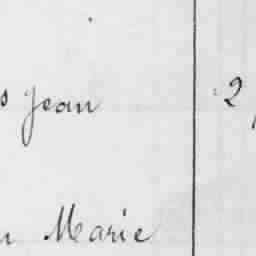 s Jean 2
n Marie